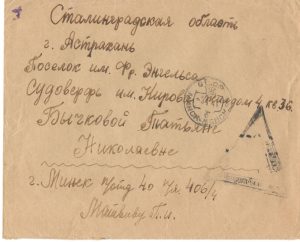 Сталинградская область
г. Астрахань
Поселок им. Фр. Энгельса
Судоверфь им. Кирова дом 4 кв. 36.
Бычковой Татьяне
Николаевне
г. Минск п/отд 40 п/я 406/4
П. И.